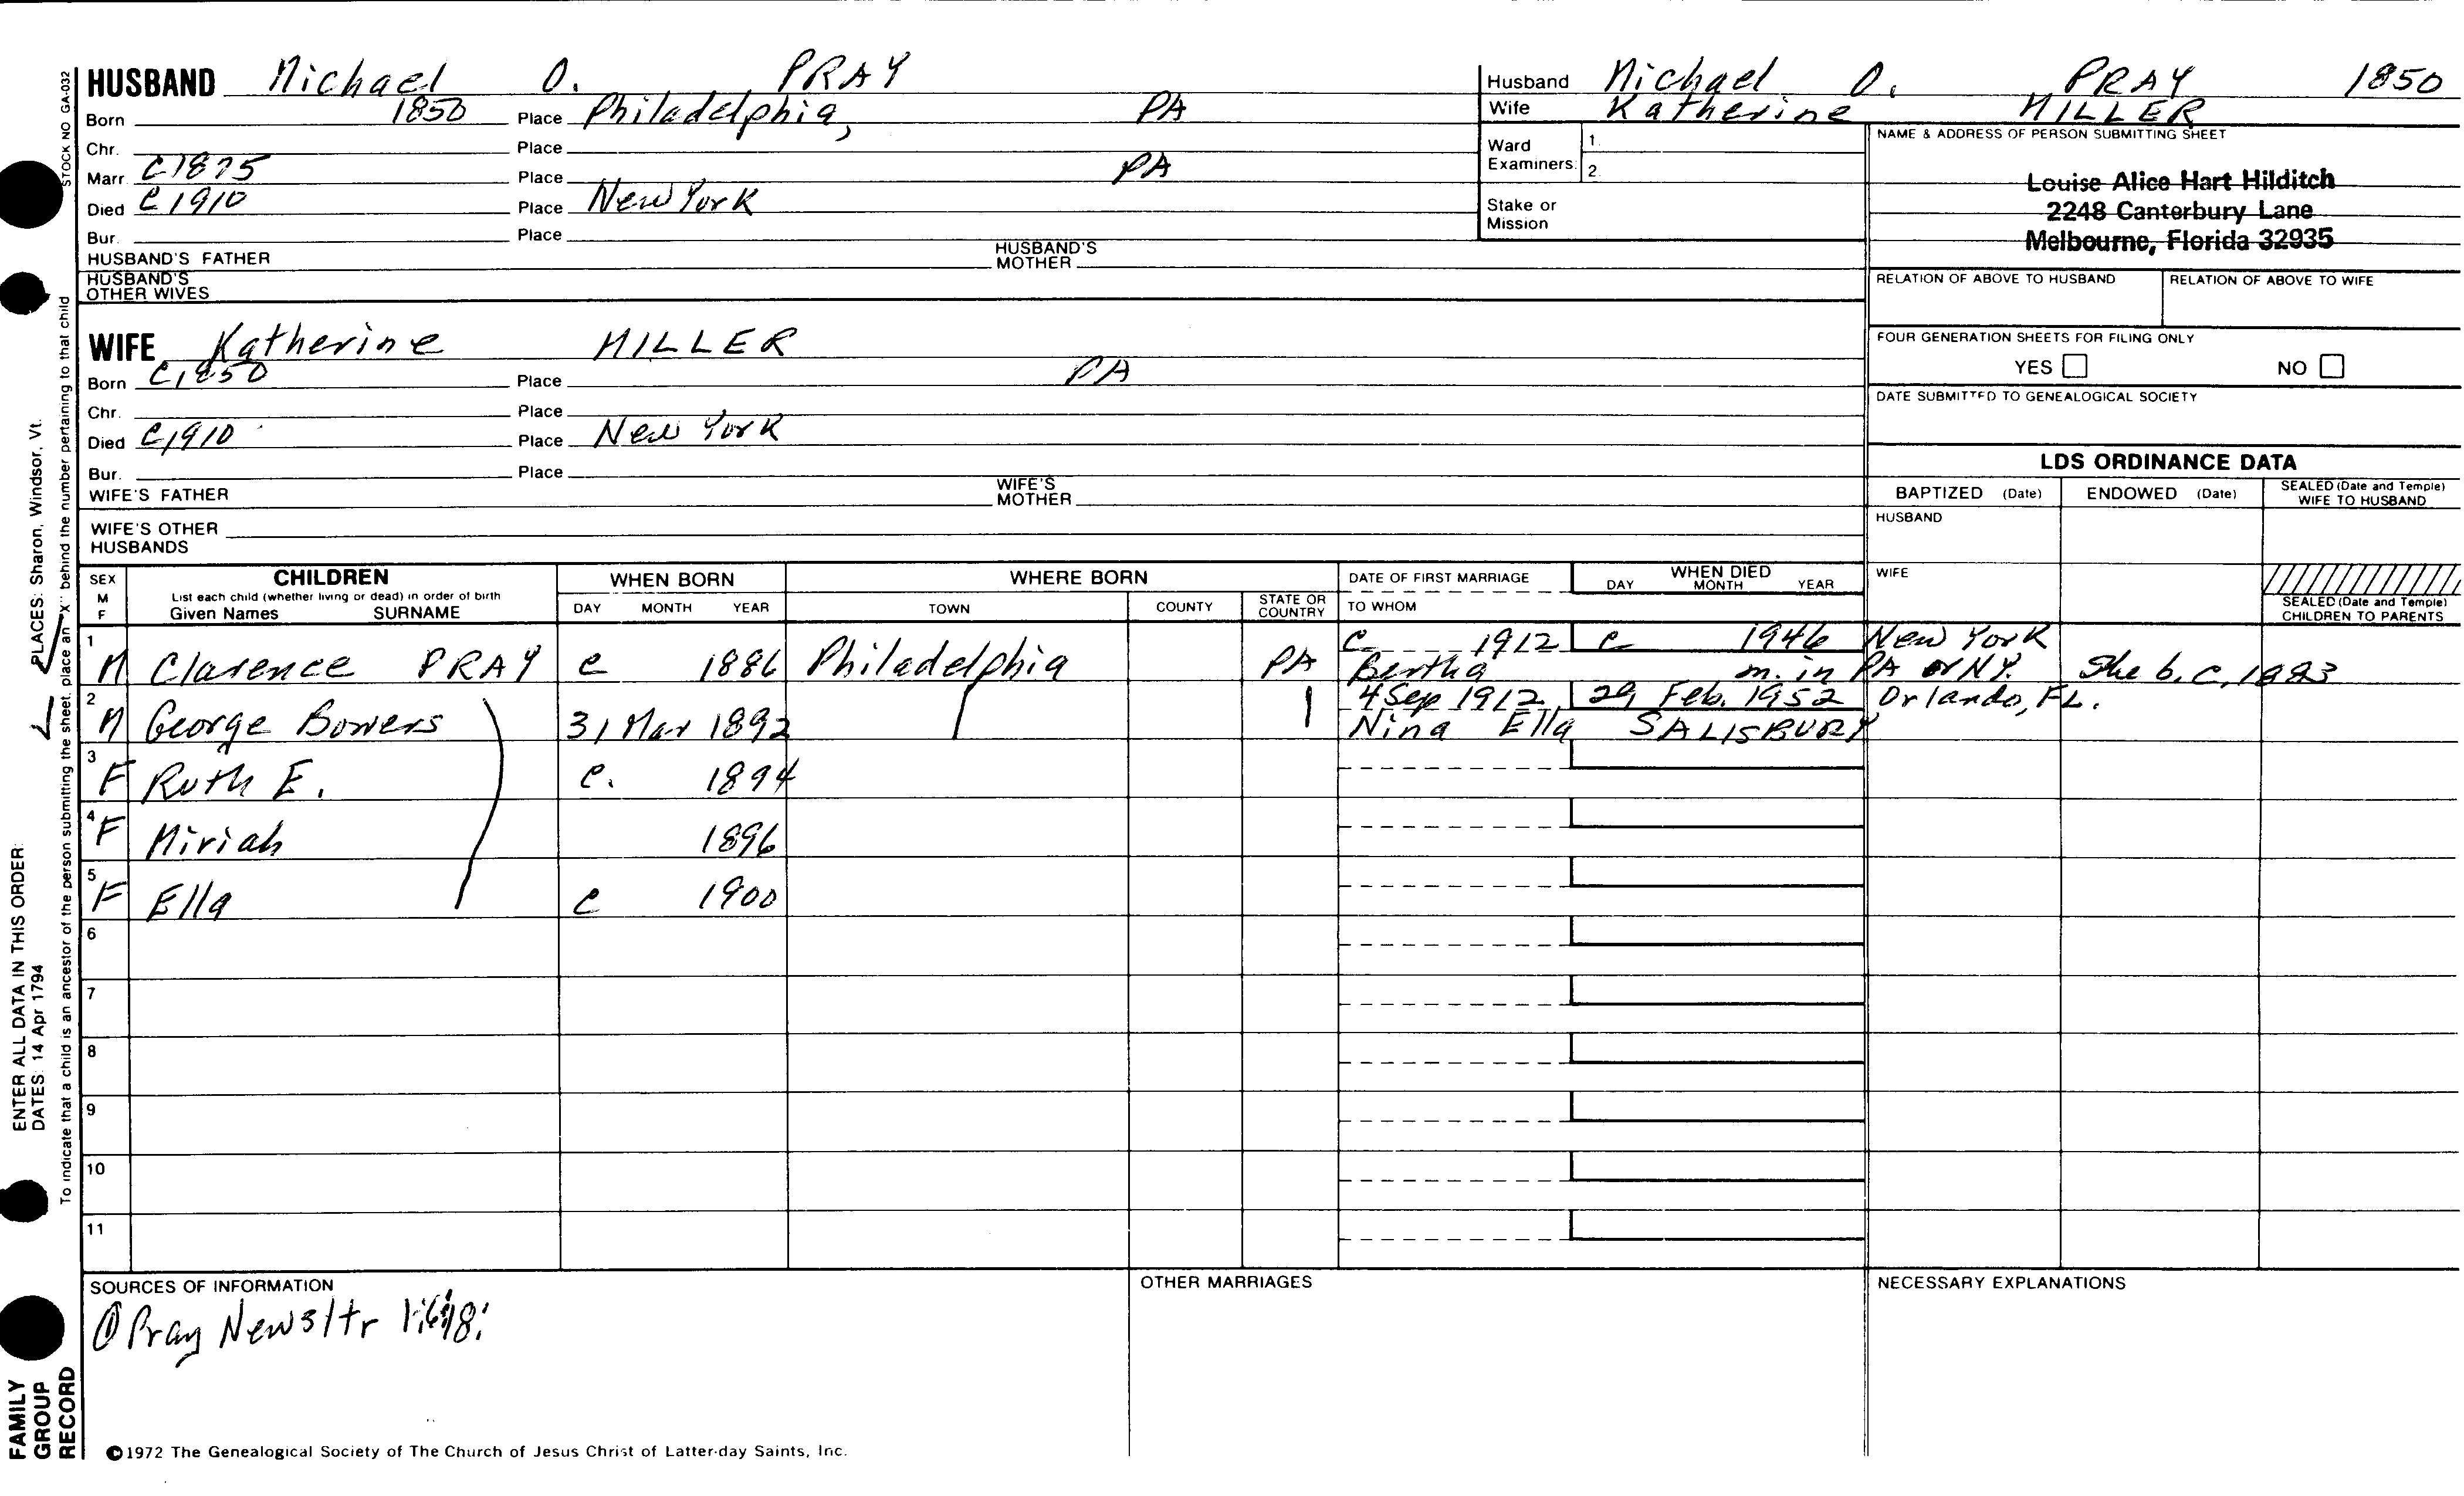 HUSBAND Michael O. PRAY
Born 1850 Place Philadelphia, PA
Chr. Place
Marr. C1875 Place PA
Died C1910 Place New York
Bur. Place
HUSBAND'S FATHER HUSBAND'S MOTHER
HUSBAND'S OTHER WIVES
WIFE Katherine MILLER
Born C1850 Place PA
Chr. Place
Died C1910 Place New York
Bur. Place
WIFE'S FATHER WIFE'S MOTHER
WIFE'S OTHER HUSBANDS
Husband Michael O. PRAY 1850
Wife Katherine MILLER
Ward Examiners: 1. 2.
Stake or Mission
NAME & ADDRESS OF PERSON SUBMITTING SHEET
Louise Alice Hart Hilditch
2248 Canterbury Lane
Melbourne, Florida 32935
RELATION OF ABOVE TO HUSBAND RELATION OF ABOVE TO WIFE
FOUR GENERATION SHEETS FOR FILING ONLY
YES NO
DATE SUBMITTED TO GENEALOGICAL SOCIETY
LDS ORDINANCE DATA
BAPTIZED (Date) ENDOWED (Date) SEALED (Date and Temple) WIFE TO HUSBAND
HUSBAND
WIFE
SEALED (Date and Temple) CHILDREN TO PARENTS
SEX M F CHILDREN WHEN BORN WHERE BORN DATE OF FIRST MARRIAGE WHEN DIED
List each child (whether living or dead) in order of birth
Given Names SURNAME DAY MONTH YEAR TOWN COUNTY STATE OR COUNTRY TO WHOM DAY MONTH YEAR
1 C 1912 c 1946 New York
M Clarence PRAY c 1886 Philadelphia PA Bertha m. in PA or NY. She b. c. 1893
2 4 Sep 1912 29 Feb. 1952 Orlando, FL.
M George Bowers 31 Mar 1892 Nina Ella SALISBURY
3 F Ruth E. c. 1894
4 F Miriah 1896
5 F Ella c 1900
6
7
8
9
10
11
SOURCES OF INFORMATION OTHER MARRIAGES NECESSARY EXPLANATIONS
① Pray Newsltr
©1972 The Genealogical Society of The Church of Jesus Christ of Latter-day Saints, Inc.
STOCK NO GA-032
To indicate that a child is an ancestor of the person submitting the sheet, place an "X" behind the number pertaining to that child
ENTER ALL DATA IN THIS ORDER:
DATES: 14 Apr 1794 PLACES: Sharon, Windsor, Vt.
FAMILY
GROUP
RECORD